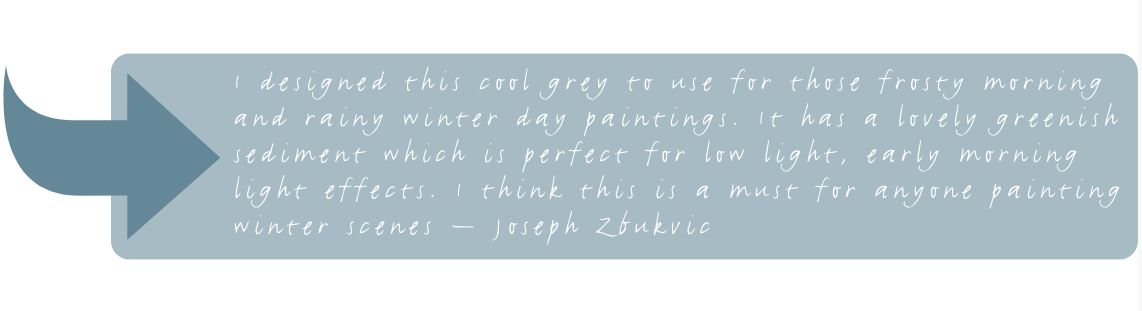 I designed this cool grey to use for those frosty morning
and rainy winter day paintings. It has a lovely greenish
sediment which is perfect for low light, early morning
light effects. I think this is a must for anyone painting
winter scenes — Joseph Zbukvic